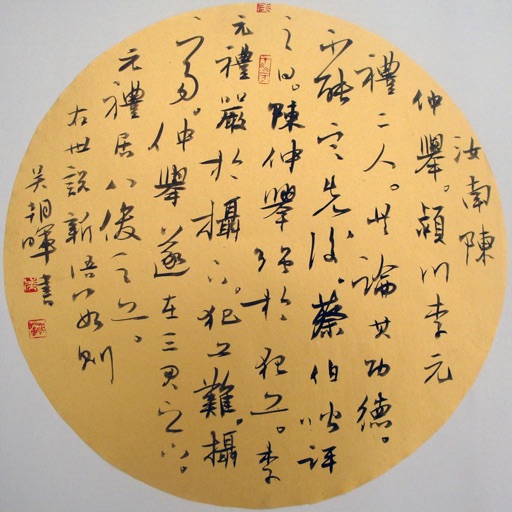 汝南陳
仲舉。潁川李元
禮二人。共論其功德。
不能定先後、蔡伯喈評
之曰。陳仲舉強於犯上。李
元禮嚴於攝下。犯上難。攝
下易。仲舉遂在三君之下。
元禮居八俊之上。
右世說新語則
吳朝暉書